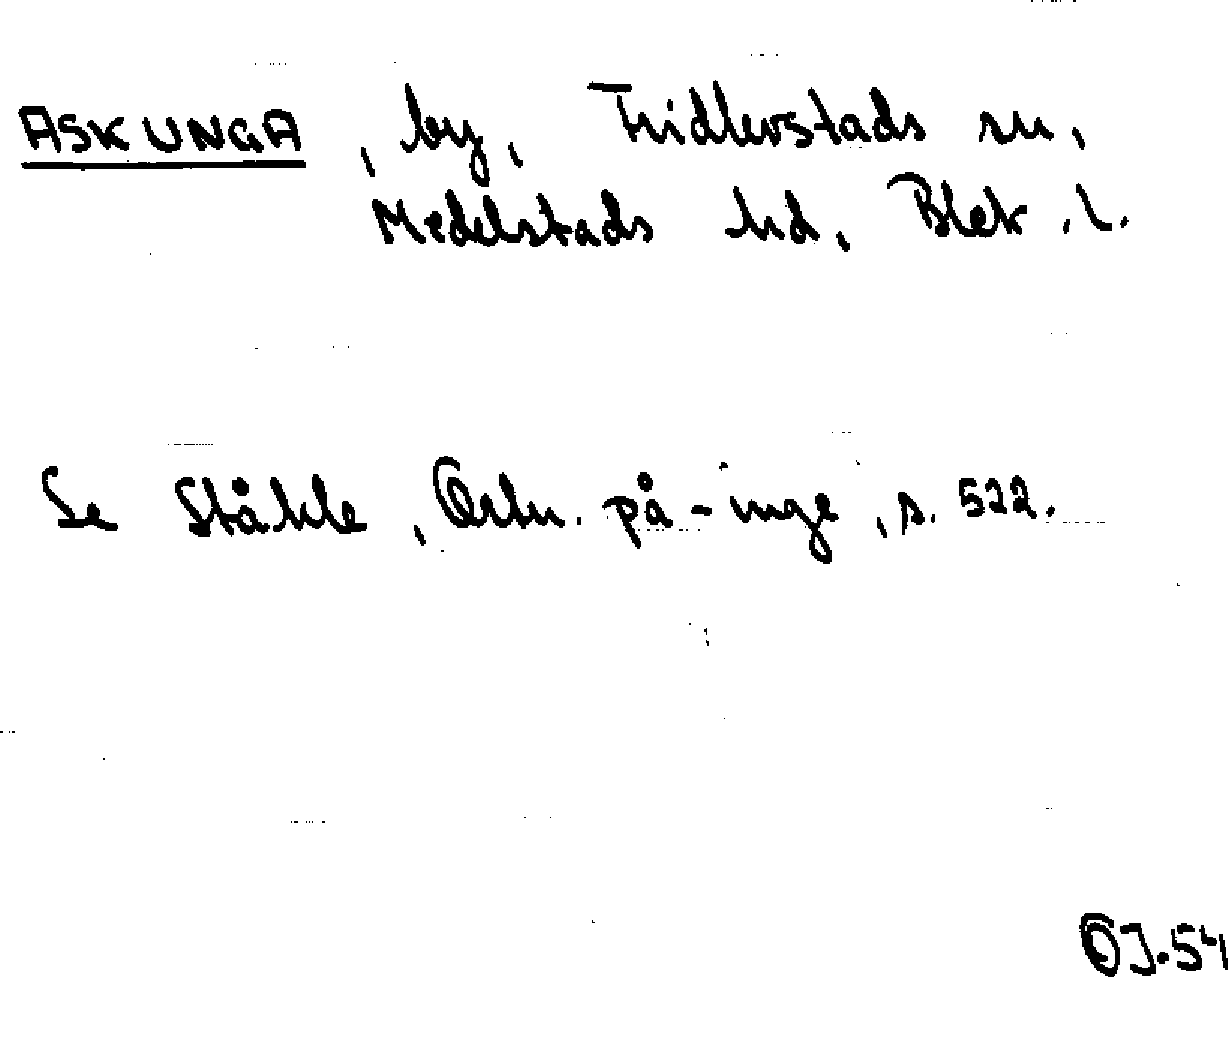 ASKUNGA, by, Fridlevstads sn,
Medelstads hd, Blek. l.
Se Ståhle, Ortn. på -inge, s. 522.
OJ.54